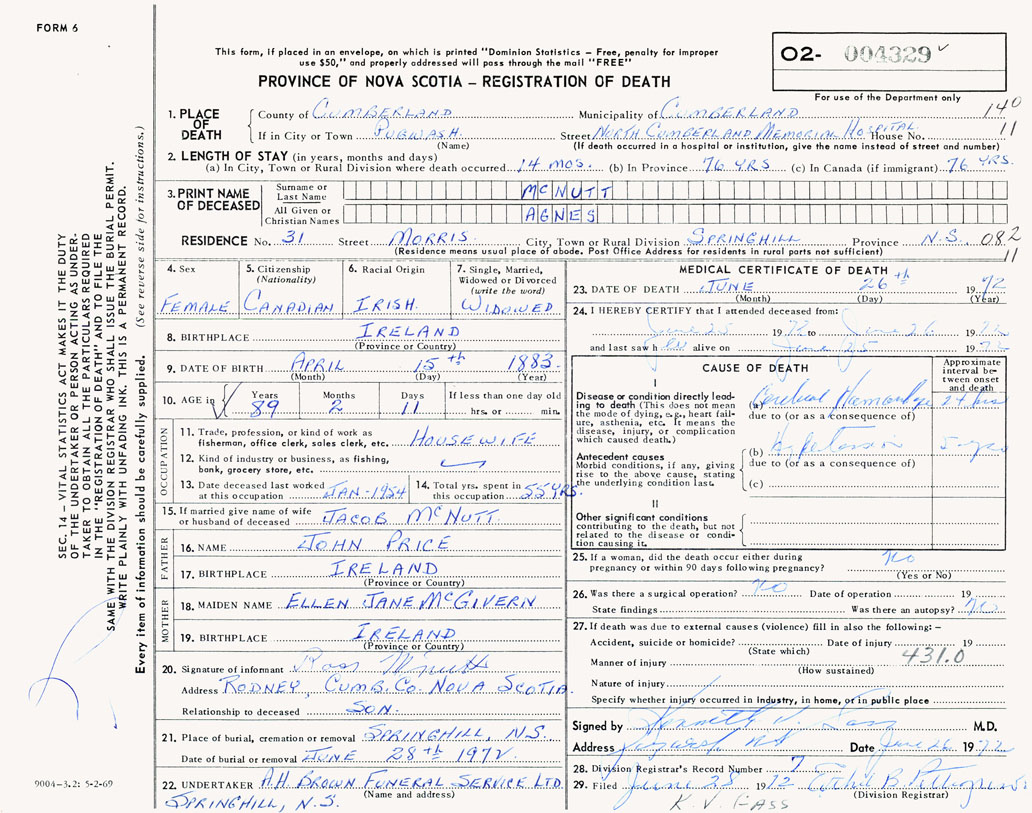 FORM 6
This form, if placed in an envelope, on which is printed "Dominion Statistics – Free, penalty for improper
use $50," and properly addressed will pass through the mail "FREE"
PROVINCE OF NOVA SCOTIA – REGISTRATION OF DEATH
O2- 004329
For use of the Department only
140
11
1. PLACE OF DEATH
County of CUMBERLAND Municipality of CUMBERLAND
If in City or Town PUGWASH Street NORTH CUMBERLAND MEMORIAL HOSPITAL House No.
(Name) (If death occurred in a hospital or institution, give the name instead of street and number)
2. LENGTH OF STAY (in years, months and days)
(a) In City, Town or Rural Division where death occurred 14 MOS. (b) In Province 76 YRS (c) In Canada (if immigrant) 76 YRS.
3. PRINT NAME OF DECEASED
Surname or Last Name MCNUTT
All Given or Christian Names AGNES
RESIDENCE No. 31 Street MORRIS City, Town or Rural Division SPRINGHILL Province N.S. 082
(Residence means usual place of abode. Post Office Address for residents in rural parts not sufficient) 11
4. Sex
FEMALE
5. Citizenship (Nationality)
CANADIAN
6. Racial Origin
IRISH
7. Single, Married, Widowed or Divorced (write the word)
WIDOWED
8. BIRTHPLACE IRELAND
(Province or Country)
9. DATE OF BIRTH APRIL 15th 1883
(Month) (Day) (Year)
10. AGE in Years Months Days If less than one day old
89 2 11 hrs. or min.
OCCUPATION
11. Trade, profession, or kind of work as fisherman, office clerk, sales clerk, etc. HOUSEWIFE
12. Kind of industry or business, as fishing, bank, grocery store, etc.
13. Date deceased last worked at this occupation JAN-1954
14. Total yrs. spent in this occupation 55 YRS.
15. If married give name of wife or husband of deceased JACOB MCNUTT.
FATHER
16. NAME JOHN PRICE
17. BIRTHPLACE IRELAND
(Province or Country)
MOTHER
18. MAIDEN NAME ELLEN JANE MCGIVERN
19. BIRTHPLACE IRELAND
(Province or Country)
20. Signature of informant Ross McNutt
Address RODNEY, CUMB. CO. NOVA SCOTIA.
Relationship to deceased SON.
21. Place of burial, cremation or removal SPRINGHILL, N.S.
Date of burial or removal JUNE 28th 1972
22. UNDERTAKER A.H. BROWN FUNERAL SERVICE LTD
(Name and address)
SPRINGHILL, N.S.
MEDICAL CERTIFICATE OF DEATH
23. DATE OF DEATH JUNE 26th 1972
(Month) (Day) (Year)
24. I HEREBY CERTIFY that I attended deceased from:
June 25 1972 to June 26 1972
and last saw her alive on June 25 1972
CAUSE OF DEATH
Approximate interval between onset and death
I
Disease or condition directly leading to death (This does not mean the mode of dying, e.g., heart failure, asthenia, etc. It means the disease, injury, or complication which caused death.)
(a) Cerebral Hemorrhage 24 hrs
due to (or as a consequence of)
Antecedent causes
Morbid conditions, if any, giving rise to the above cause, stating the underlying condition last.
(b) Hypertension 5 yrs
due to (or as a consequence of)
(c)
II
Other significant conditions
contributing to the death, but not related to the disease or condition causing it.
25. If a woman, did the death occur either during pregnancy or within 90 days following pregnancy? No
(Yes or No)
26. Was there a surgical operation? No Date of operation 19
State findings Was there an autopsy? No
27. If death was due to external causes (violence) fill in also the following: –
Accident, suicide or homicide? Date of injury 19
(State which) 431.0
Manner of injury
(How sustained)
Nature of injury
Specify whether injury occurred in industry, in home, or in public place
Signed by Kenneth V. M.D.
Address Pugwash NS Date June 26 1972
28. Division Registrar's Record Number 7
29. Filed June 28 1972 Ethel B.
(Division Registrar)
K. V. GASS
SEC. 14 – VITAL STATISTICS ACT MAKES IT THE DUTY
OF THE UNDERTAKER OR PERSON ACTING AS UNDER-
TAKER TO OBTAIN ALL THE PARTICULARS REQUIRED
IN THE "REGISTRATION OF DEATH" AND TO FILE THE
SAME WITH THE DIVISION REGISTRAR WHO SHALL ISSUE THE BURIAL PERMIT.
WRITE PLAINLY WITH UNFADING INK. THIS IS A PERMANENT RECORD.
Every item of information should be carefully supplied. (See reverse side for instructions.)
9004-3.2: 5-2-69